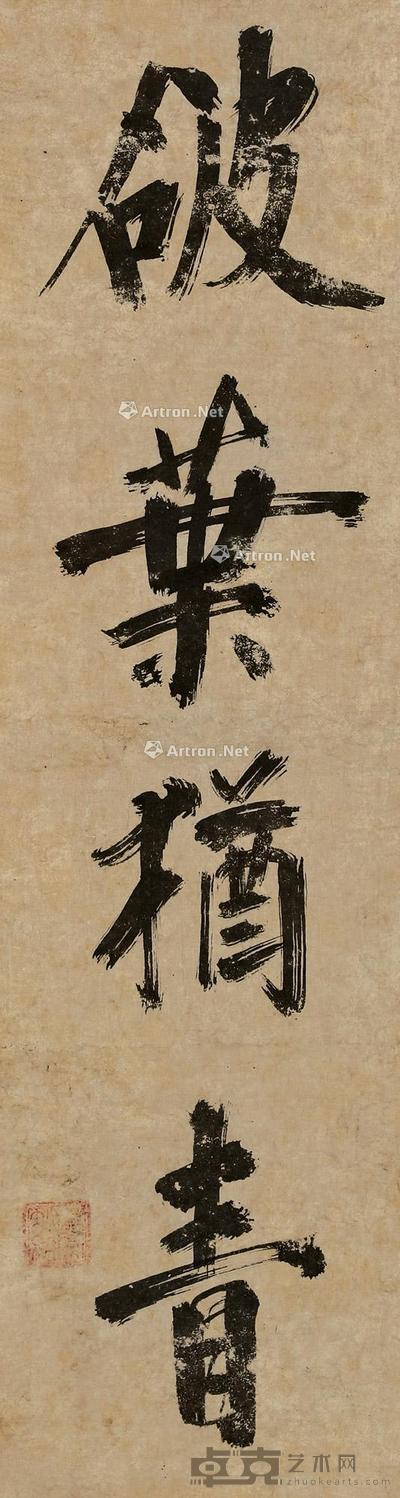 破葉猶青
Artron.Net
Artron.Net
Artron.Net
卓克艺术网
zhuokearts.com